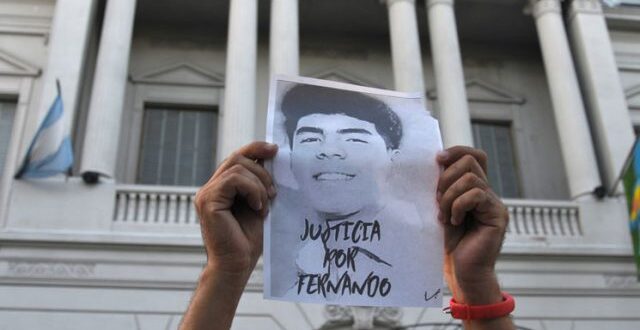 JUSTICIA
POR
FERNANDO